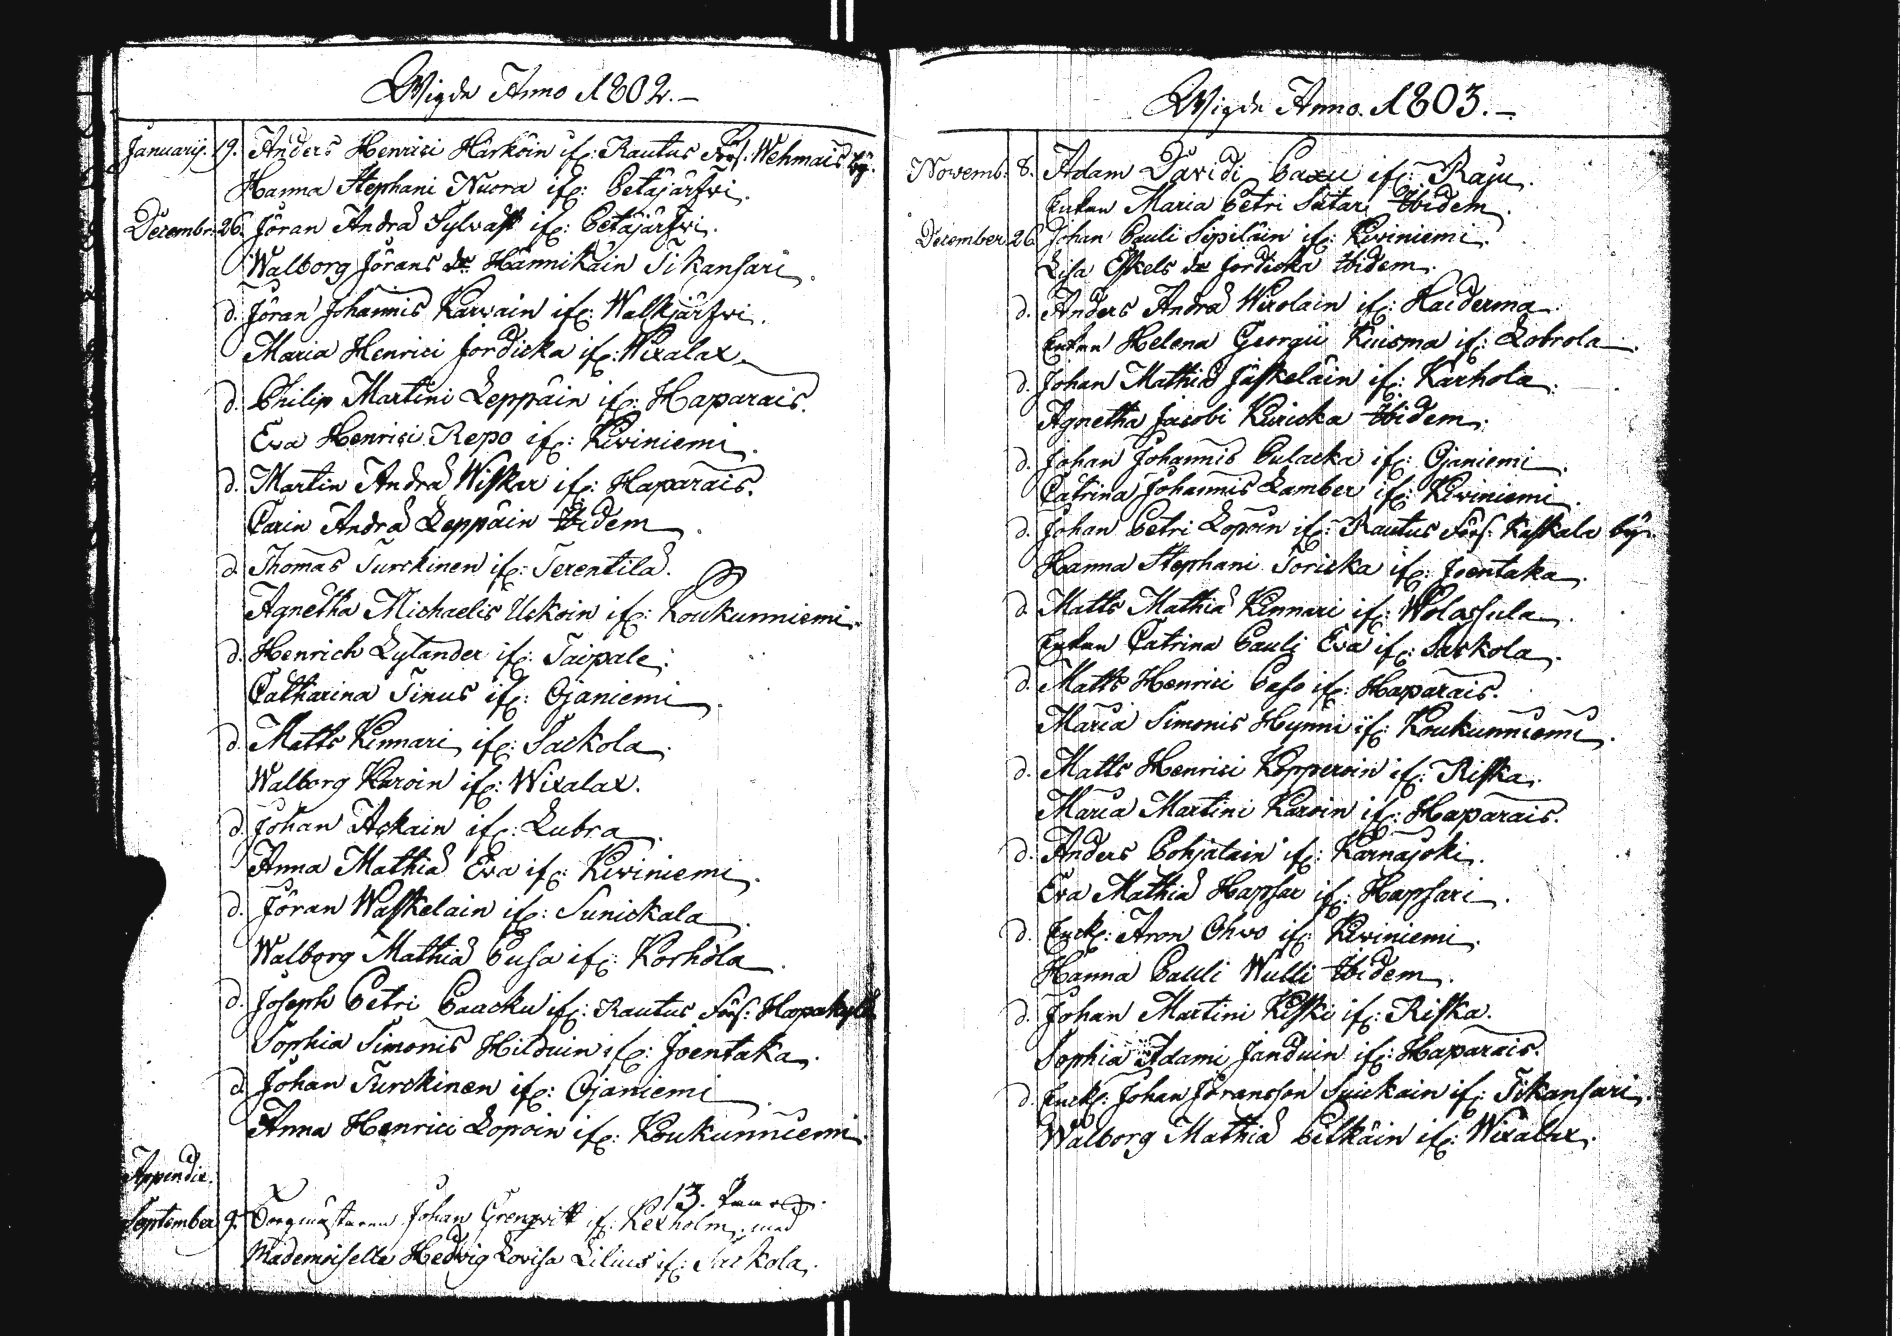 Wigde Anno 1802.-
Januarij. 19. Anders Henrici Härköin if: Rautus Förs: Wehmais by.
Hanna Stephani Nuora if: Petäjärfwi.
Decembr: 26. Jöran Andrae Sylvast if: Petäjärfwi.
Walborg Jörans dr Hännikäin Tikansari.
d. Jöran Johannis Karvain if: Walkjärfwi.
Maria Henrici Jordicka if: Wixalax.
d. Philip Martini Leppäin if: Haparais.
Eva Henrici Repo if: Kiviniemi.
d. Martin Andrae Wiskar if: Haparais.
Carin Andrae Leppäin Ibidem.
d. Thomas Turckinen if: Terentilä.
Agnetha Michaelis Uckoin if: Koukunniemi.
d. Henrich Lytander if: Taipale.
Catharina Sinus if: Ojaniemi.
d. Matts Kinnari if: Sackola.
Walborg Karoin if: Wixalax.
d. Johan Ackain if: Lubra.
Anna Mathiae Eva if: Kiviniemi.
d. Jöran Waskelain if: Sunickala.
Walborg Mathiae Pusa if: Korhola.
d. Joseph Petri Paacku if: Rautus Förs:
Sophia Simonis Hilduin if: Joentaka.
d. Johan Turckinen if: Ojaniemi.
Anna Henrici Lopoin if: Koukunniemi.
Appendix.
13. Paar.
September 9. Borgmästaren Johan Grenqvist if: Kexholm, med
Mademoiselle Hedvig Lovisa Lilius if: Sackola.
Wigde Anno. 1803.-
Novemb: 8. Adam Davidi Paxu if: Raju.
Enkan Maria Petri Sutar Ibidem.
December 26. Johan Pauli Sipiläin if: Kiviniemi.
Lisa Eskels dr Jordicka Ibidem.
d. Anders Andrae Wirolain if: Haiderma.
Enkan Helena Georgii Kuisma if: Lobrola.
d. Johan Mathiae Jäskeläin if: Karhola.
Agnetha Jacobi Kuricka Ibidem.
d. Johan Johannis Pulacka if: Ojaniemi.
Catrina Johannis Lamber if: Kiviniemi.
d. Johan Petri Lopoin if: Rautus Förs: Kaskala by.
Hanna Stephani Toricka if: Joentaka.
d. Matts Mathiae Kinnari if: Wolossula.
Enkan Catrina Pauli Eva if: Sackola.
d. Matts Henrici Paso if: Haparais.
Maria Simonis Hynni if: Koukunniemi.
d. Matts Henrici Kopperoin if: Riska.
Maria Martini Karoin if: Haparais.
d. Anders Pohjalain if: Karnajoki.
Eva Mathiae Hapsar if: Hapsari.
d. Enckl: Aron Ohvo if: Kiviniemi.
Hanna Pauli Wulli Ibidem.
d. Johan Martini Kiski if: Riska.
Sophia Adami Janduin if: Haparais.
d. Enckl: Johan Jöransson Suickain if: Tikansari.
Walborg Mathiae Pelkäin if: Wixalax.